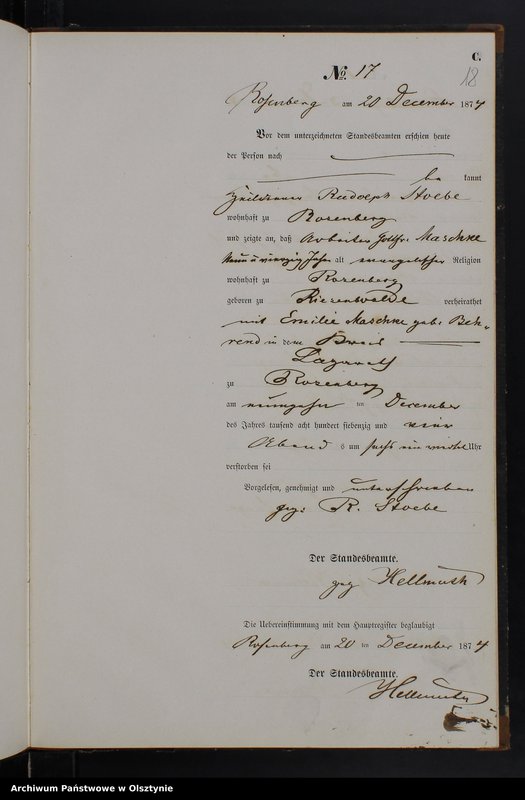 C.
№ 17
18
Rosenberg am 20 December 1874
Vor dem unterzeichneten Standesbeamten erschien heute
der Person nach
be kannt
Rudolph Stoebe
wohnhaft zu Rosenberg
und zeigte an, daß Arbeiter Gottfr. Maschke
neun u vierzig Jahr alt evangelischer Religion
wohnhaft zu Rosenberg
geboren zu Riesenwalde verheirathet
mit Emilie Maschke geb. Beh-
rend in dem Kreis
Lazareth
zu Rosenberg
am neunzehn ten December
des Jahres tausend acht hundert siebenzig und vier
Abend s um sechs ein viertel Uhr
verstorben sei
Vorgelesen, genehmigt und unterschrieben
gez: R. Stoebe
Der Standesbeamte.
gez Hellmuth
Die Uebereinstimmung mit dem Hauptregister beglaubigt
Rosenberg am 20 ten December 1874
Der Standesbeamte.
Hellmuth
Archiwum Państwowe w Olsztynie